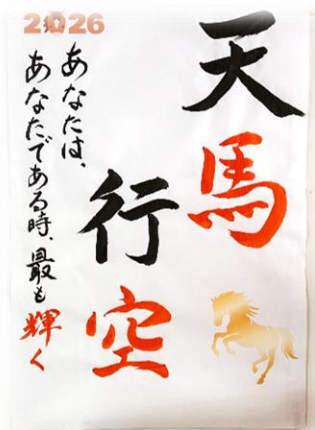 2026
天馬
行空
あなたは、
あなたである時、最も輝く